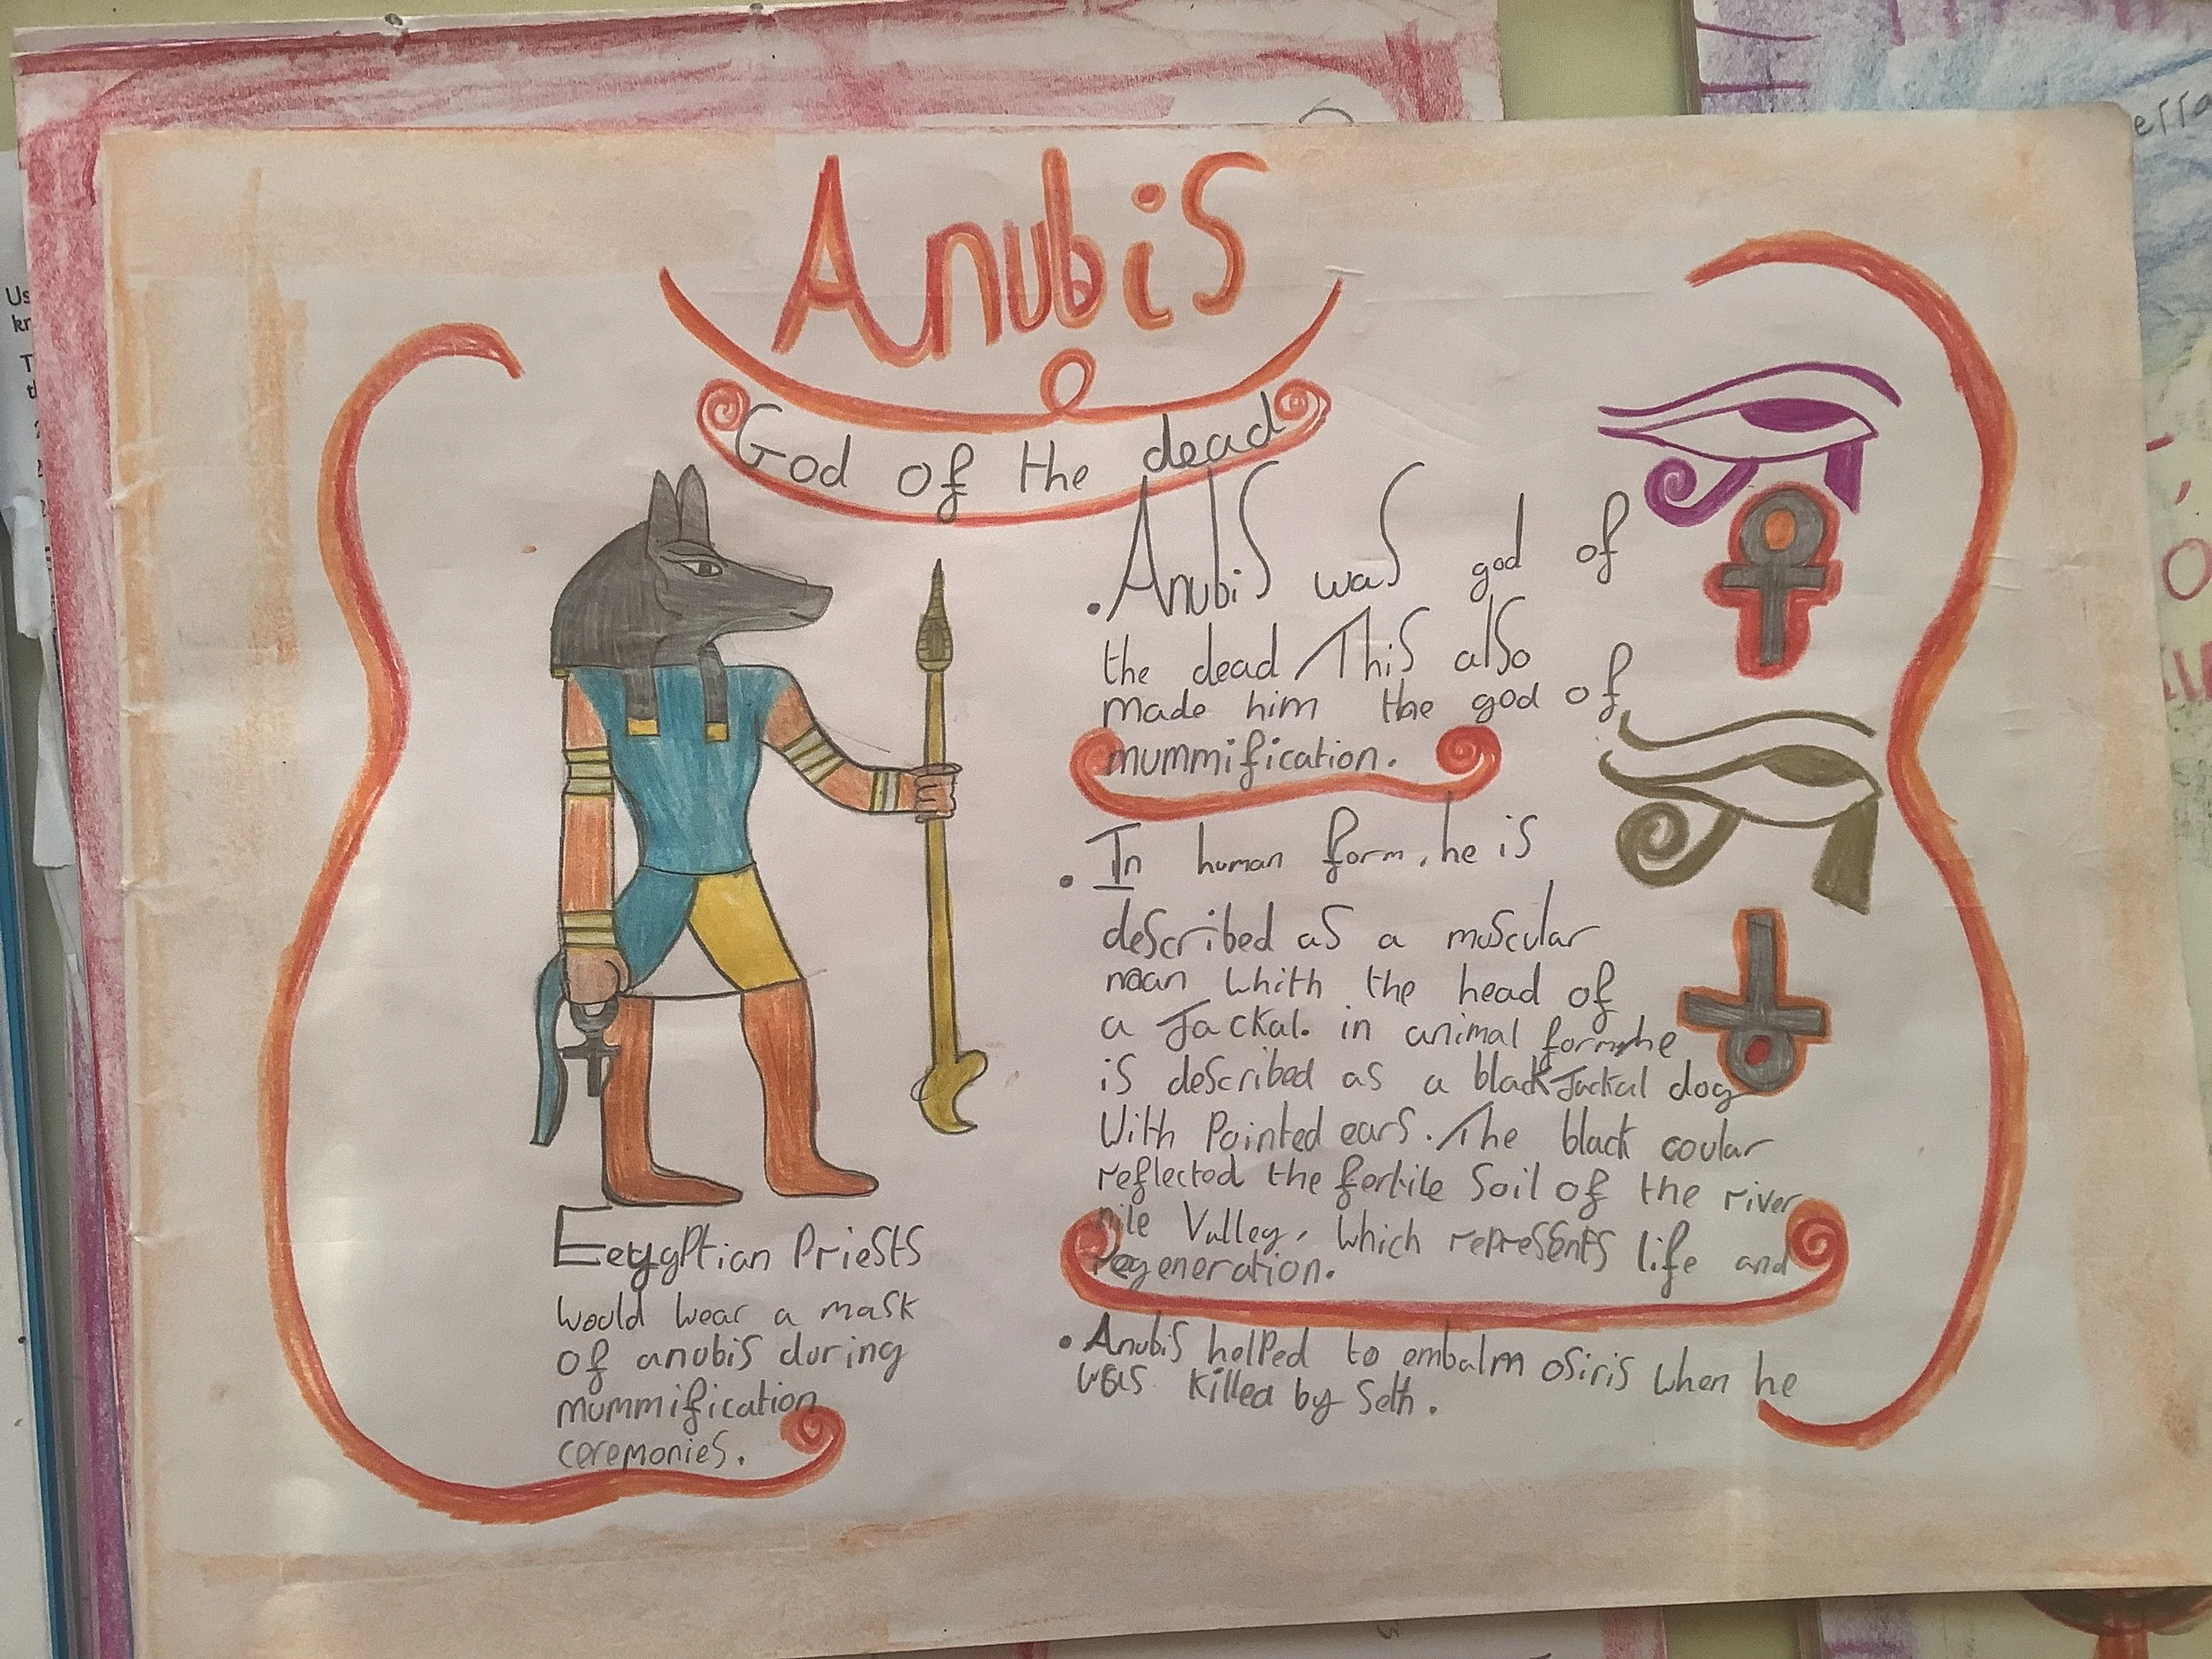 Anubis
God of the dead
• Anubis was god of
the dead. This also
made him the god of
mummification.
• In human form, he is
described as a muscular
man whith the head of
a Jackal. in animal form he
is described as a black Jackal dog
With Pointed ears. The black coular
reflected the fertile Soil of the river
nile Valley, which represents life and
regeneration.
• Anubis helped to embalm osiris when he
was killed by Seth.
Eeygptian Priests
would wear a mask
of anubis during
mummification
ceremonies.